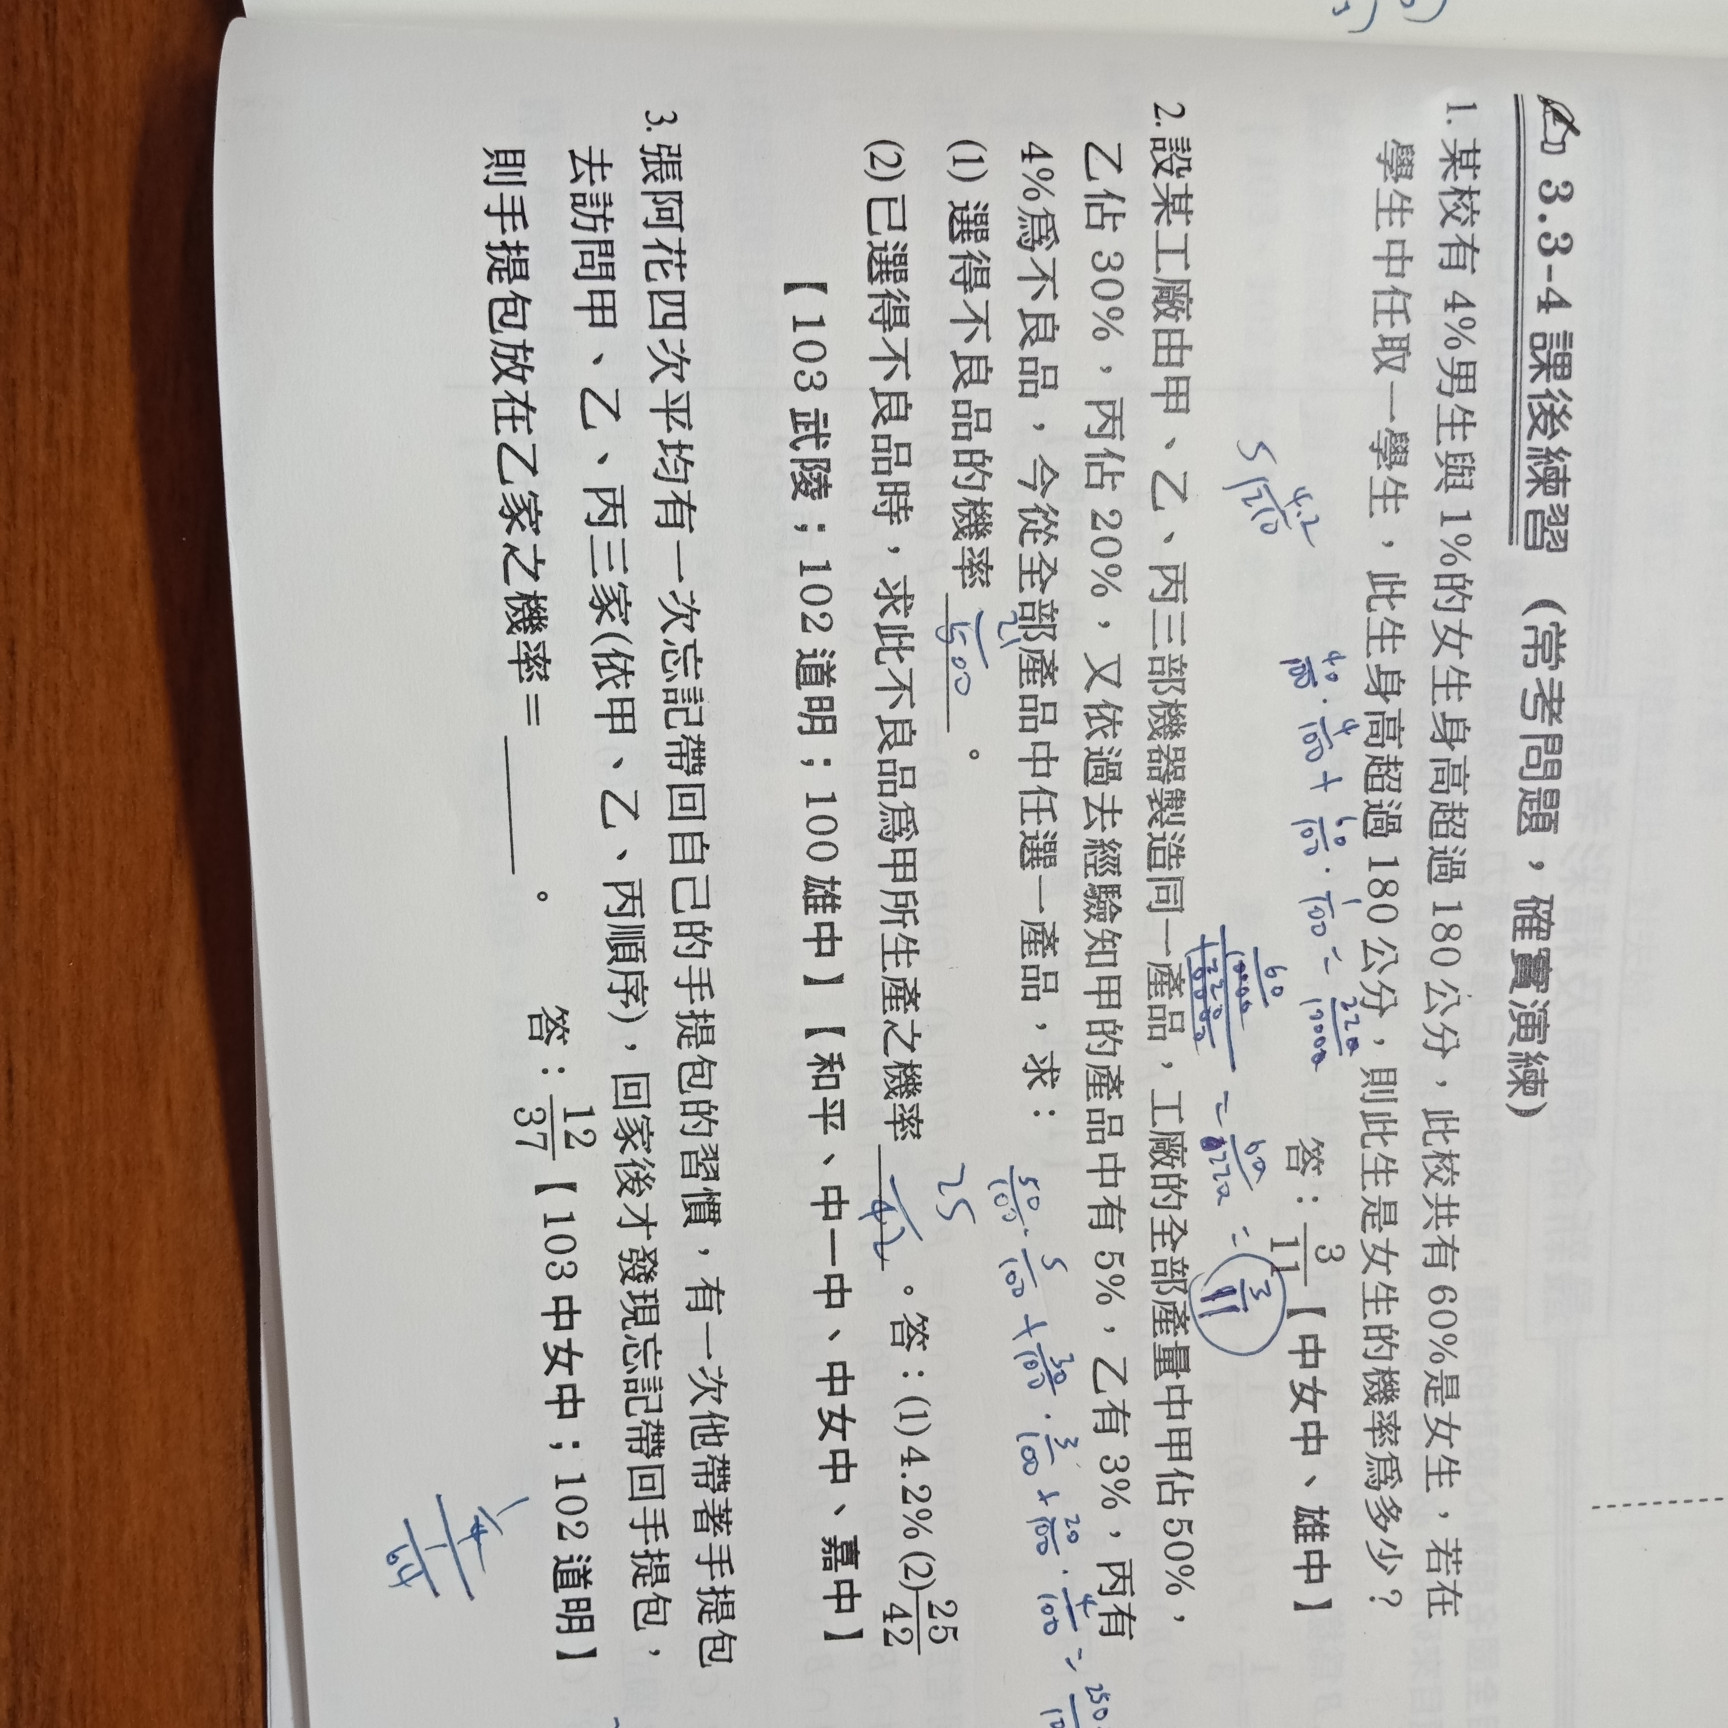 ✍ 3.3-4 課後練習 (常考問題，確實演練)
1. 某校有 4%男生與 1%的女生身高超過 180 公分，此校共有 60%是女生，若在
學生中任取一學生，此生身高超過 180 公分，則此生是女生的機率為多少？
答：3/11【中女中、雄中】
40/100 · 4/100 + 60/100 · 1/100 = 220/10000
60/10000 / 220/10000 = 60/220 = 3/11
4.2
5)210
2. 設某工廠由甲、乙、丙三部機器製造同一產品，工廠的全部產量中甲佔 50%，
乙佔 30%，丙佔 20%，又依過去經驗知甲的產品中有 5%，乙有 3%，丙有
4%為不良品，今從全部產品中任選一產品，求：
50/100 · 5/100 + 30/100 · 3/100 + 20/100 · 4/100 = 250
(1) 選得不良品的機率 21/500 。
(2) 已選得不良品時，求此不良品為甲所生產之機率 25/42 。答：(1) 4.2% (2) 25/42
【103 武陵；102 道明；100 雄中】【和平、中一中、中女中、嘉中】
3. 張阿花四次平均有一次忘記帶回自己的手提包的習慣，有一次他帶著手提包
去訪問甲、乙、丙三家(依甲、乙、丙順序)，回家後才發現忘記帶回手提包，
則手提包放在乙家之機率＝ ______ 。 答：12/37【103 中女中；102 道明】